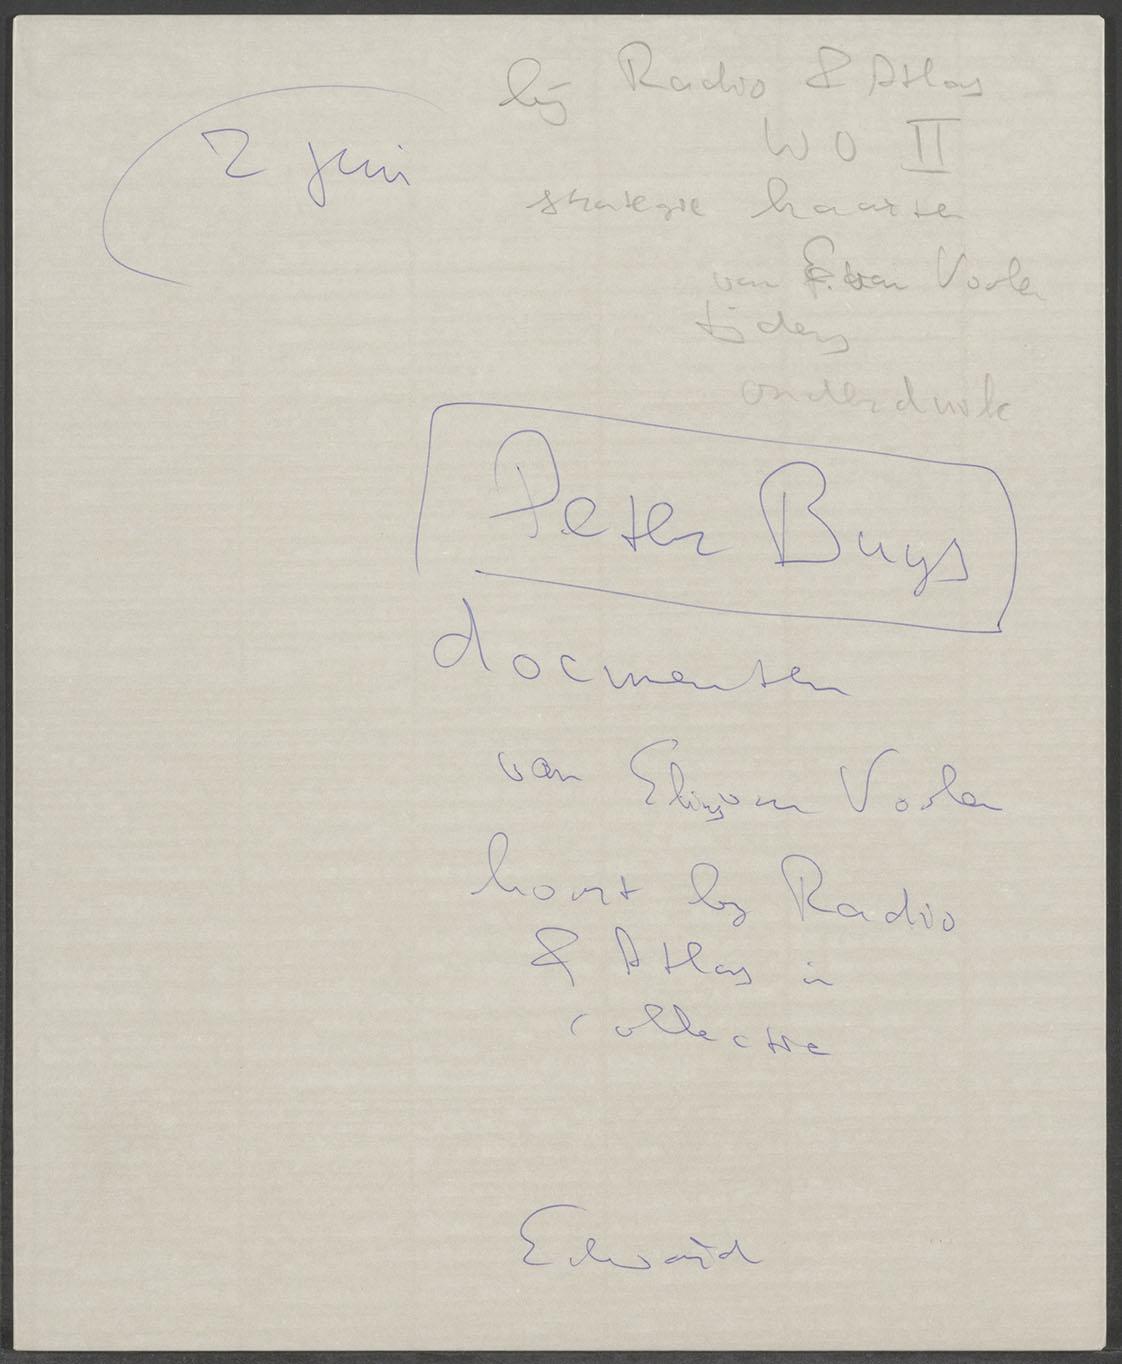 bij Radio & Atlas
2 juni
WO II
strategie kaarten
van E. van Voolen
tijdens
onderduik
Peter Buys
documenten
van Elisz van Voolen
komt bij Radio
& Atlas in
collectie
Edward